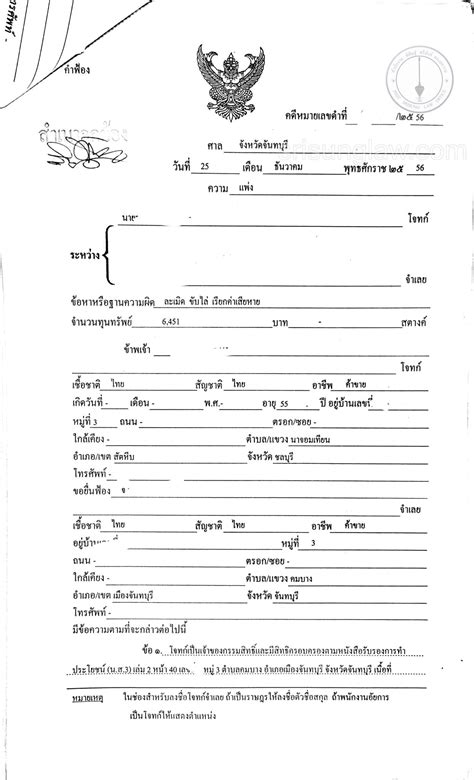 คำฟ้อง
สำเนาคำฟ้อง
คดีหมายเลขดำที่ /๒๕ 56
ศาล จังหวัดจันทบุรี
วันที่ 25 เดือน ธันวาคม พุทธศักราช ๒๕ 56
ความ แพ่ง
นาย โจทก์
ระหว่าง
จำเลย
ข้อหาหรือฐานความผิด ละเมิด ขับไล่ เรียกค่าเสียหาย
จำนวนทุนทรัพย์ 6,451 บาท - สตางค์
ข้าพเจ้า
โจทก์
เชื้อชาติ ไทย สัญชาติ ไทย อาชีพ ค้าขาย
เกิดวันที่ - เดือน - พ.ศ.- อายุ 55 ปี อยู่บ้านเลขที่
หมู่ที่ 3 ถนน - ตรอก/ซอย -
ใกล้เคียง - ตำบล/แขวง นาจอมเทียน
อำเภอ/เขต สัตหีบ จังหวัด ชลบุรี
โทรศัพท์ -
ขอยื่นฟ้อง
จำเลย
เชื้อชาติ ไทย สัญชาติ ไทย อาชีพ ค้าขาย
อยู่บ้านเลขที่ หมู่ที่ 3
ถนน - ตรอก/ซอย -
ใกล้เคียง - ตำบล/แขวง คมบาง
อำเภอ/เขต เมืองจันทบุรี จังหวัด จันทบุรี
โทรศัพท์ -
มีข้อความตามที่จะกล่าวต่อไปนี้
ข้อ ๑. โจทก์เป็นเจ้าของกรรมสิทธิ์และมีสิทธิครอบครองตามหนังสือรับรองการทำ
ประโยชน์ (น.ส.3) เล่ม 2 หน้า 40 หมู่ 3 ตำบลคมบาง อำเภอเมืองจันทบุรี จังหวัดจันทบุรี เนื้อที่
หมายเหตุ ในช่องสำหรับลงชื่อโจทก์จำเลย ถ้าเป็นราษฎรให้ลงชื่อตัวชื่อสกุล ถ้าพนักงานอัยการ
เป็นโจทก์ให้แสดงตำแหน่ง